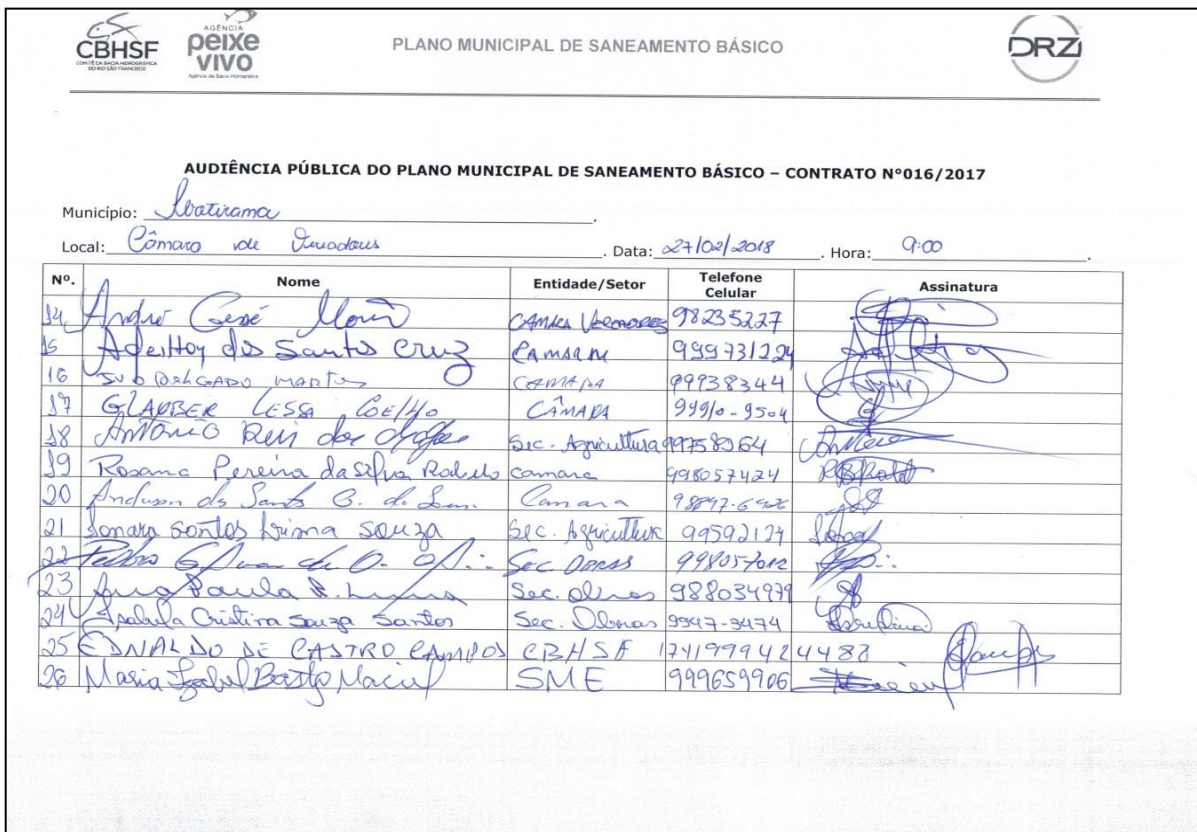 CBHSF
COMITÊ DA BACIA HIDROGRÁFICA
DO RIO SÃO FRANCISCO
AGÊNCIA
peixe
VIVO
Agência de Bacia Hidrográfica
PLANO MUNICIPAL DE SANEAMENTO BÁSICO
DRZ
AUDIÊNCIA PÚBLICA DO PLANO MUNICIPAL DE SANEAMENTO BÁSICO – CONTRATO Nº016/2017
Município: Ibotirama.
Local: Câmara de Vereadores. Data: 27/02/2018. Hora: 9:00.
Nº. Nome Entidade/Setor Telefone Celular Assinatura
14 André CAMARA VEREADORES 98235227
15 Adeilton dos Santos Cruz CAMARA 999731224
16 DELGADO MARTINS CAMARA 99938344
17 GLAUBER LESSA COELHO CÂMARA 99910-9504
18 Antônio Reis dos Sec. Agricultura
19 Rosana Pereira da Silva camara 998057424
20 Anderson dos Santos Camara
21 Santos Lima Souza Sec. Agricultura 99592127
22 Pedro Sec OBRAS 998057012
23 Ana Paula Sec. Obras 988034979
24 Isabela Cristina Souza Santos Sec. Obras 9947-3474
25 EDNALDO DE CASTRO CAMPOS CBHSF (74)999424488
26 Maria Izabel Bastos Maciel SME 999659906